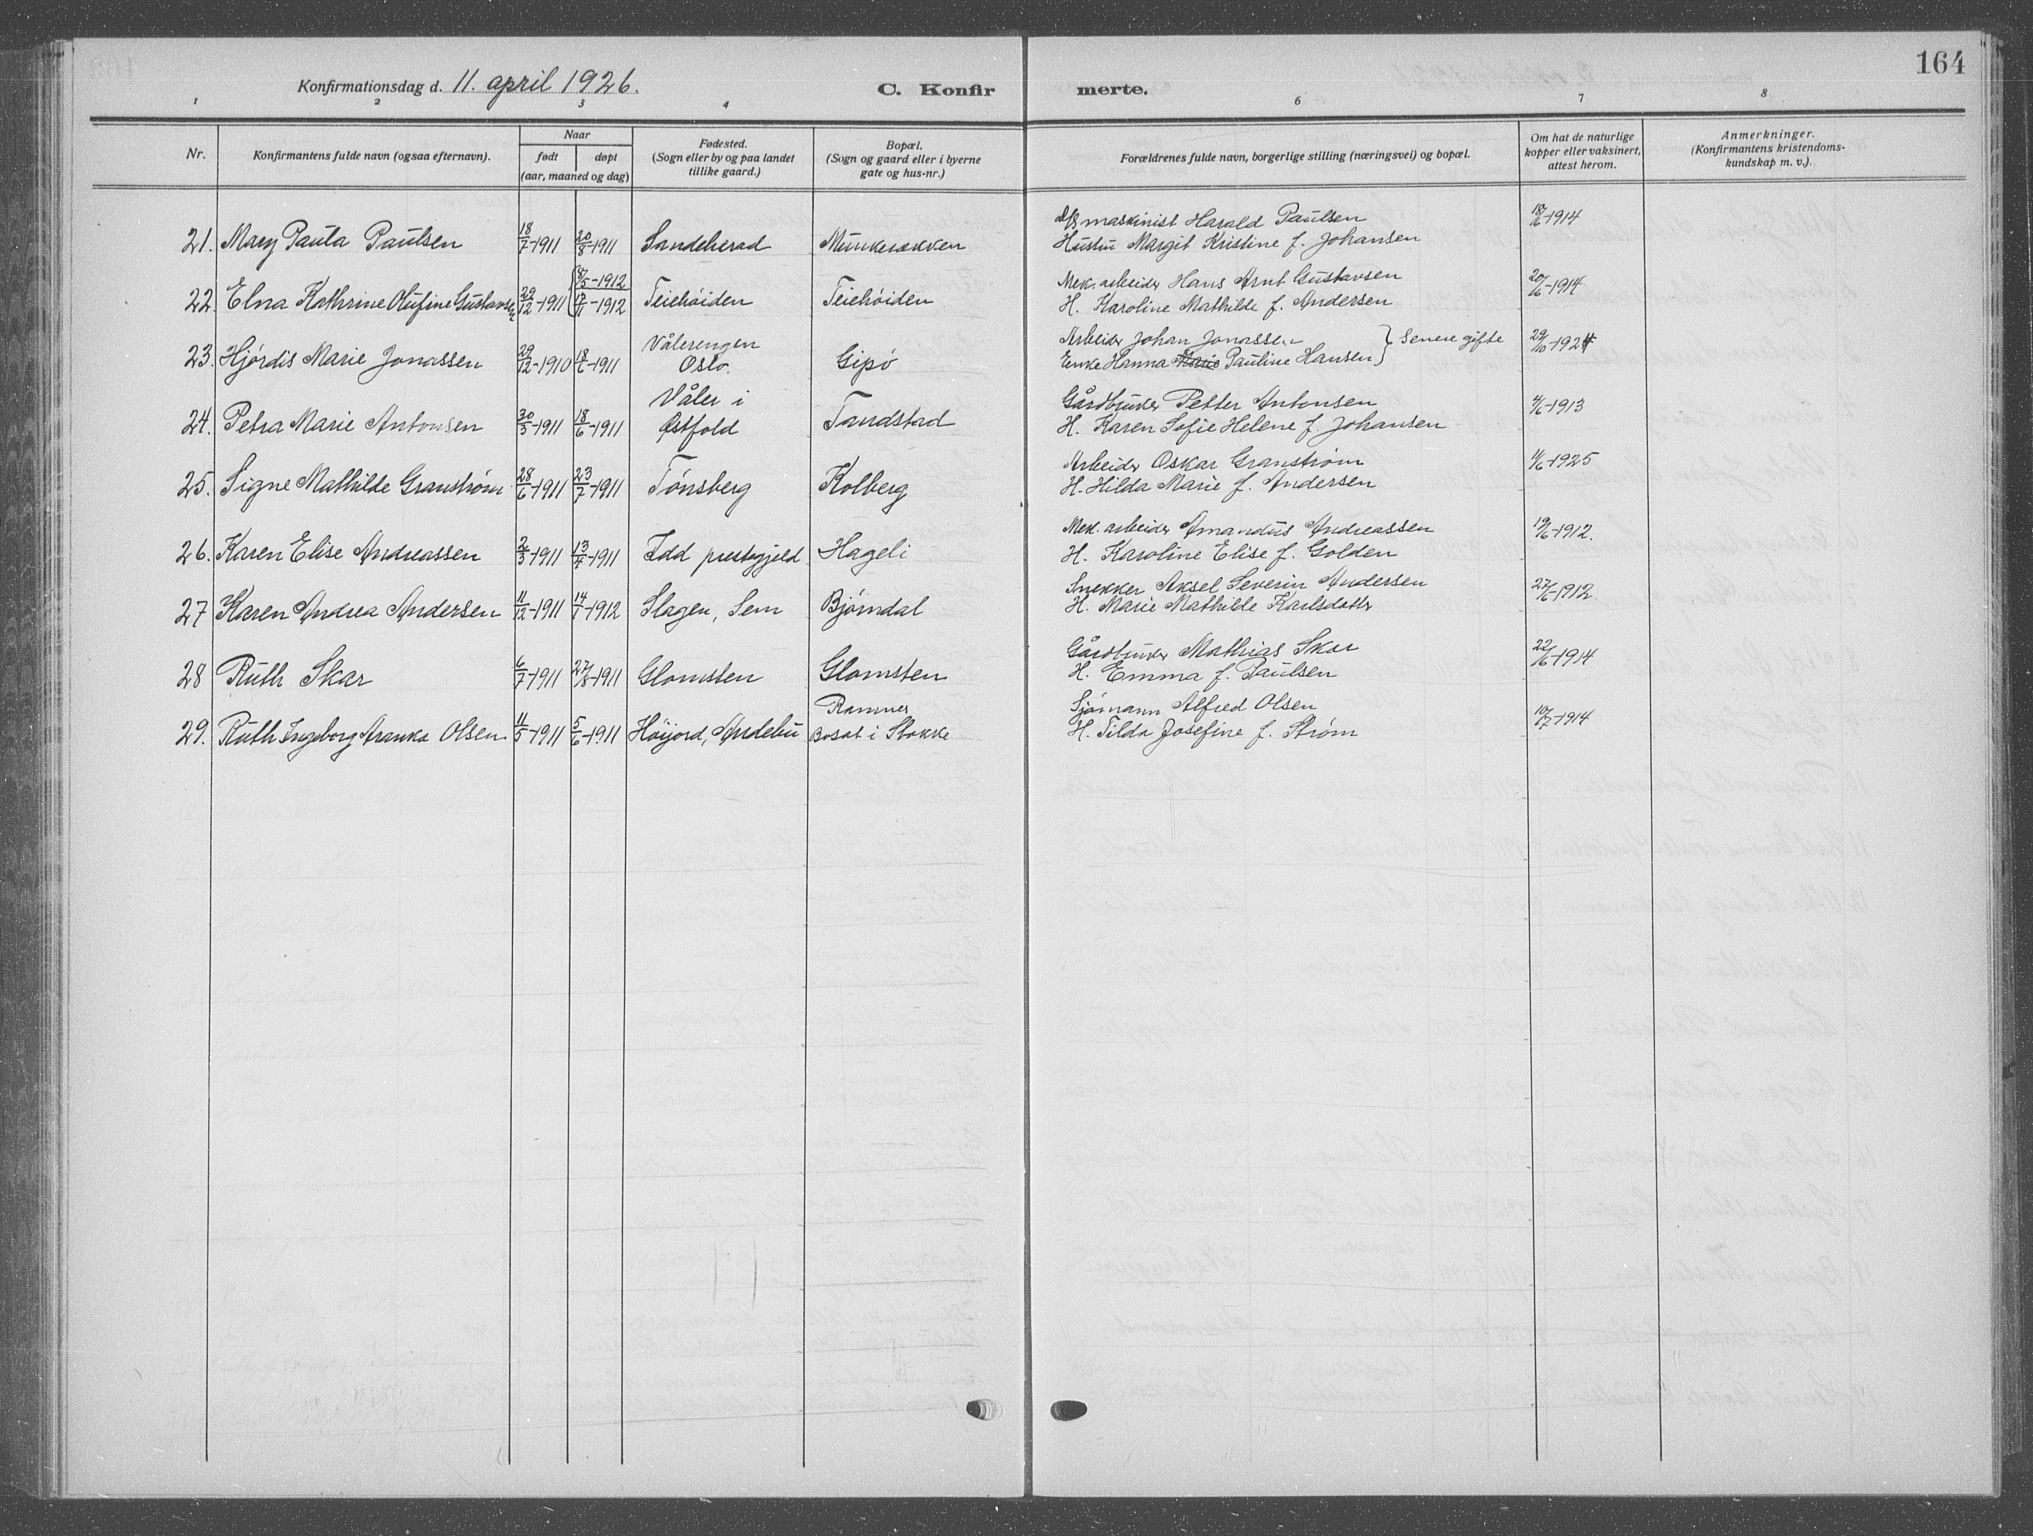 164
Konfirmationsdag d. 11. april 1926.
C. Konfir merte.
1 2 3 4 6 7 8
Nr.
Konfirmantens fulde navn (ogsaa efternavn).
Naar
født døpt
(aar, maaned og dag)
Fødested.
(Sogn eller by og paa landet
tillike gaard.)
Bopæl.
(Sogn og gaard eller i byerne
gate og hus-nr.)
Forældrenes fulde navn, borgerlige stilling (næringsvei) og bopæl.
Om hat de naturlige
kopper eller vaksinert,
attest herom.
Anmerkninger.
(Konfirmantens kristendoms-
kundskap m. v.).
D/S maskinist Harald Paulsen 18/6-1914
21. Mary Paula Paulsen 18/7-1911 20/8-1911 Sandeherad Munkerækken Hustru Margit Kristine f. Johansen
-1912 Mek. arbeider Hans Arnt Gustavsen 20/6-1914
22. Elna Kathrine Olufine Gustavsen 29/12-1911 17/11-1912 Teiehöiden Teiehöiden H. Karoline Mathilde f. Andersen
Vålerengen Arbeider Johan Jonassen } Senere gifte 29/10-1924
23. Hjørdis Marie Jonassen 29/12-1910 18/6-1911 Oslo. Gipø Enke Hanna Marie Pauline Hansen
Våler i Gårdbruker Petter Antonsen 4/6-1913
24. Petra Marie Antonsen 30/3-1911 18/6-1911 Østfold Tandstad H. Karen Sofie Helene f. Johansen
Arbeider Oskar Granstrøm 11/6-1925
25. Signe Mathilde Granstrøm 28/6-1911 23/7-1911 Tønsberg Kolberg H. Hilda Marie f. Andersen
Mek. arbeider Amandus Andreassen 19/6-1912.
26. Karen Elise Andreassen 2/3-1911 13/4-1911 Idd prestegjeld Hageli H. Karoline Elise f. Golden
Snekker Aksel Severin Andersen 27/6-1912.
27 Karen Andrea Andersen 11/12-1911 14/1-1912 Slagen, Sem Bjørndal H. Marie Mathilde Karlsdatter
Gårdbruker Mathias Skar 22/6-1914
28 Ruth Skar 6/7-1911 27/8-1911 Glomsten Glomsten H. Emma f. Paulsen
Ramnes Sjømann Alfred Olsen 10/7-1914
29. Ruth Ingeborg Aranka Olsen. 11/5-1911 5/6-1911 Höijord, Andebu Bosat i Stokke H. Tilda Josefine f. Strøm